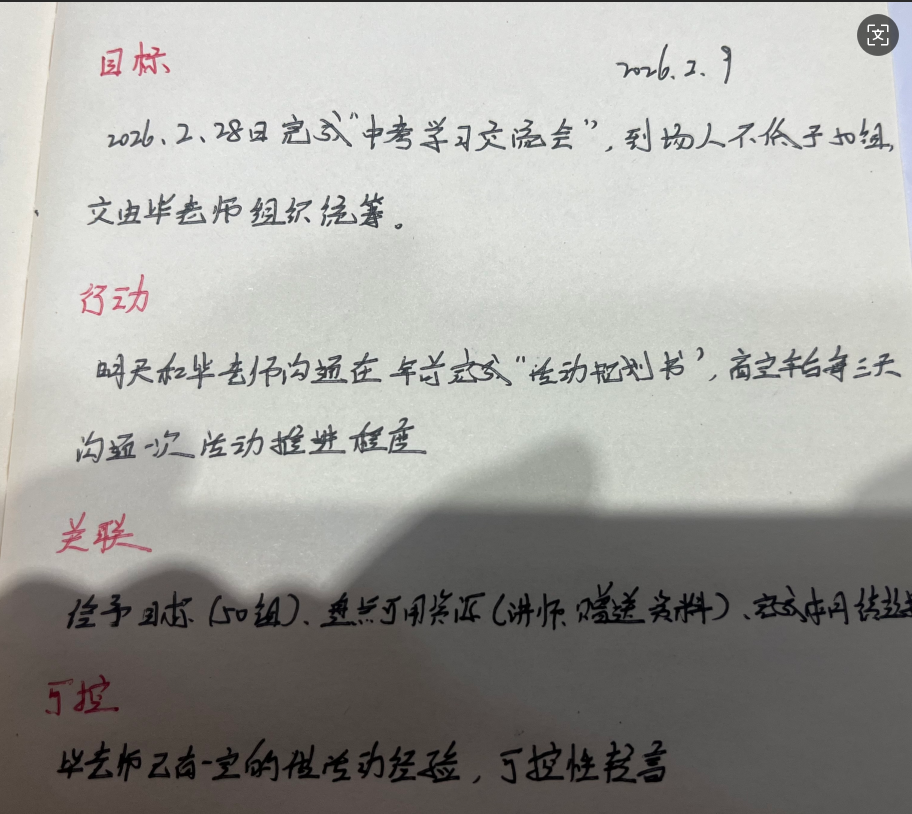 目标 2026.2.9
2026.2.28日完成“中考学习交流会”，到场人不低于50组，
交由毕老师组织统筹。
行动
明天和毕老师沟通在年前完成“活动规划书”，商定年后每三天
沟通一次活动推进程度
关联
给予目标（50组）、盘点可用资源（讲师、赠送资料）、完成本月续
可控
毕老师已有一定的做活动经验，可控性较高